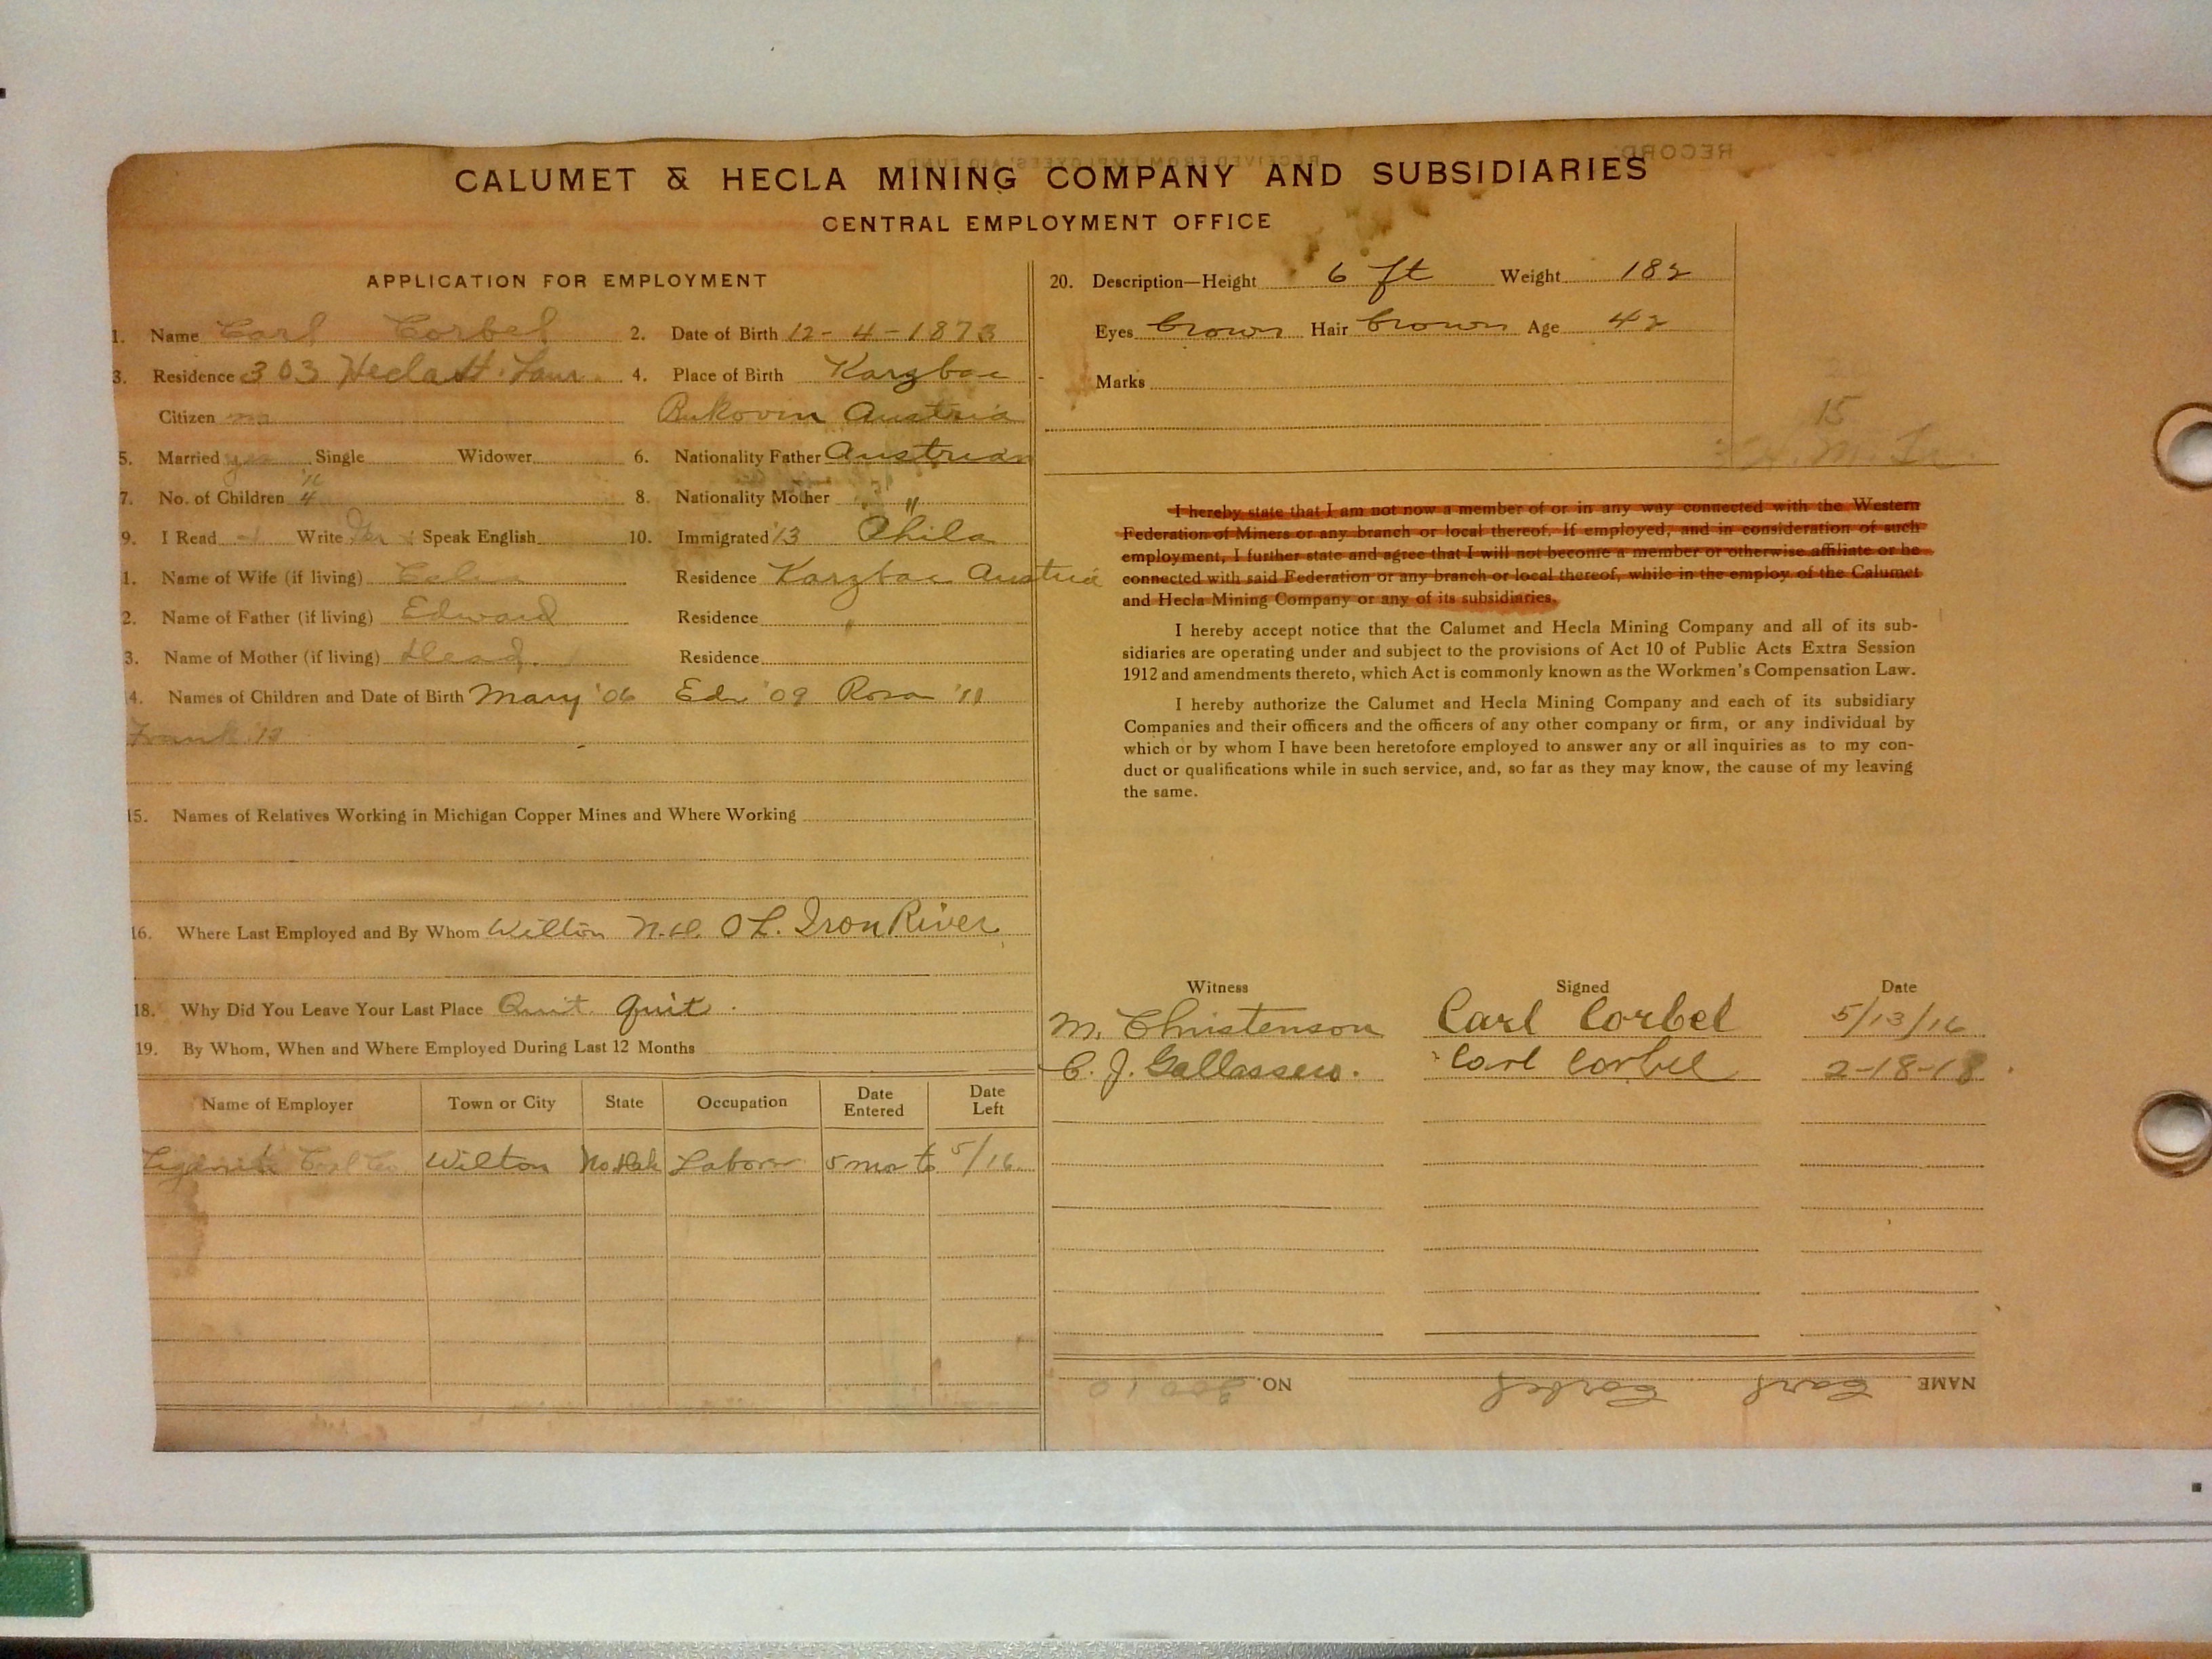 CALUMET & HECLA MINING COMPANY AND SUBSIDIARIES
CENTRAL EMPLOYMENT OFFICE
APPLICATION FOR EMPLOYMENT
1. Name Carl Corbel 2. Date of Birth 12-4-1873
3. Residence 303 Hecla St. Laur. 4. Place of Birth Karzbac
Citizen no Bukovin Austria
5. Married yes Single Widower 6. Nationality Father Austrian
7. No. of Children 4 8. Nationality Mother "
9. I Read Write Speak English 10. Immigrated '13 Phila
1. Name of Wife (if living) Residence Karzbac Austria
2. Name of Father (if living) Edward Residence "
3. Name of Mother (if living) Dead Residence
4. Names of Children and Date of Birth Mary '06 Edw '09 Rosa '11
Frank '13
15. Names of Relatives Working in Michigan Copper Mines and Where Working
16. Where Last Employed and By Whom Wilton N.D. O L. Iron River
18. Why Did You Leave Your Last Place Quit. quit.
19. By Whom, When and Where Employed During Last 12 Months
Name of Employer Town or City State Occupation Date Entered Date Left
Coal Co Wilton No Dak Labor 5 mos to 5/16
20. Description—Height 6 ft Weight 182
Eyes brown Hair brown Age 42
Marks
15
I hereby state that I am not now a member of or in any way connected with the Western
Federation of Miners or any branch or local thereof. If employed, and in consideration of such
employment, I further state and agree that I will not become a member or otherwise affiliate or be
connected with said Federation or any branch or local thereof, while in the employ of the Calumet
and Hecla Mining Company or any of its subsidiaries.
I hereby accept notice that the Calumet and Hecla Mining Company and all of its sub-
sidiaries are operating under and subject to the provisions of Act 10 of Public Acts Extra Session
1912 and amendments thereto, which Act is commonly known as the Workmen's Compensation Law.
I hereby authorize the Calumet and Hecla Mining Company and each of its subsidiary
Companies and their officers and the officers of any other company or firm, or any individual by
which or by whom I have been heretofore employed to answer any or all inquiries as to my con-
duct or qualifications while in such service, and, so far as they may know, the cause of my leaving
the same.
Witness Signed Date
M. Christenson Carl Corbel 5/13/16
C. J. Carl Corbel 2-18-18
NAME Carl Corbel NO.
RECORD
RECEIVED FROM EMPLOYEES' AID FUND